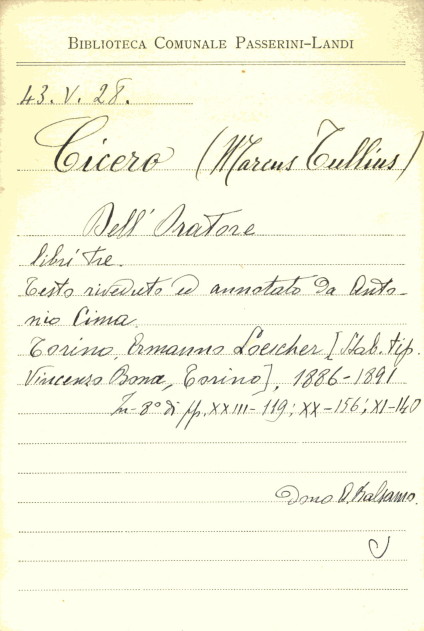 BIBLIOTECA COMUNALE PASSERINI-LANDI
43. V. 28.
Cicero (Marcus Tullius)
Dell' Oratore
libri tre.
Testo riveduto ed annotato da Anto-
nio Cima.
Torino, Ermanno Loescher [Stab. tip.
Vincenzo Bona, Torino], 1886-1891
In-8° di pp. XXIII-119; XX-156; XI-140
Dono A. Balsamo.